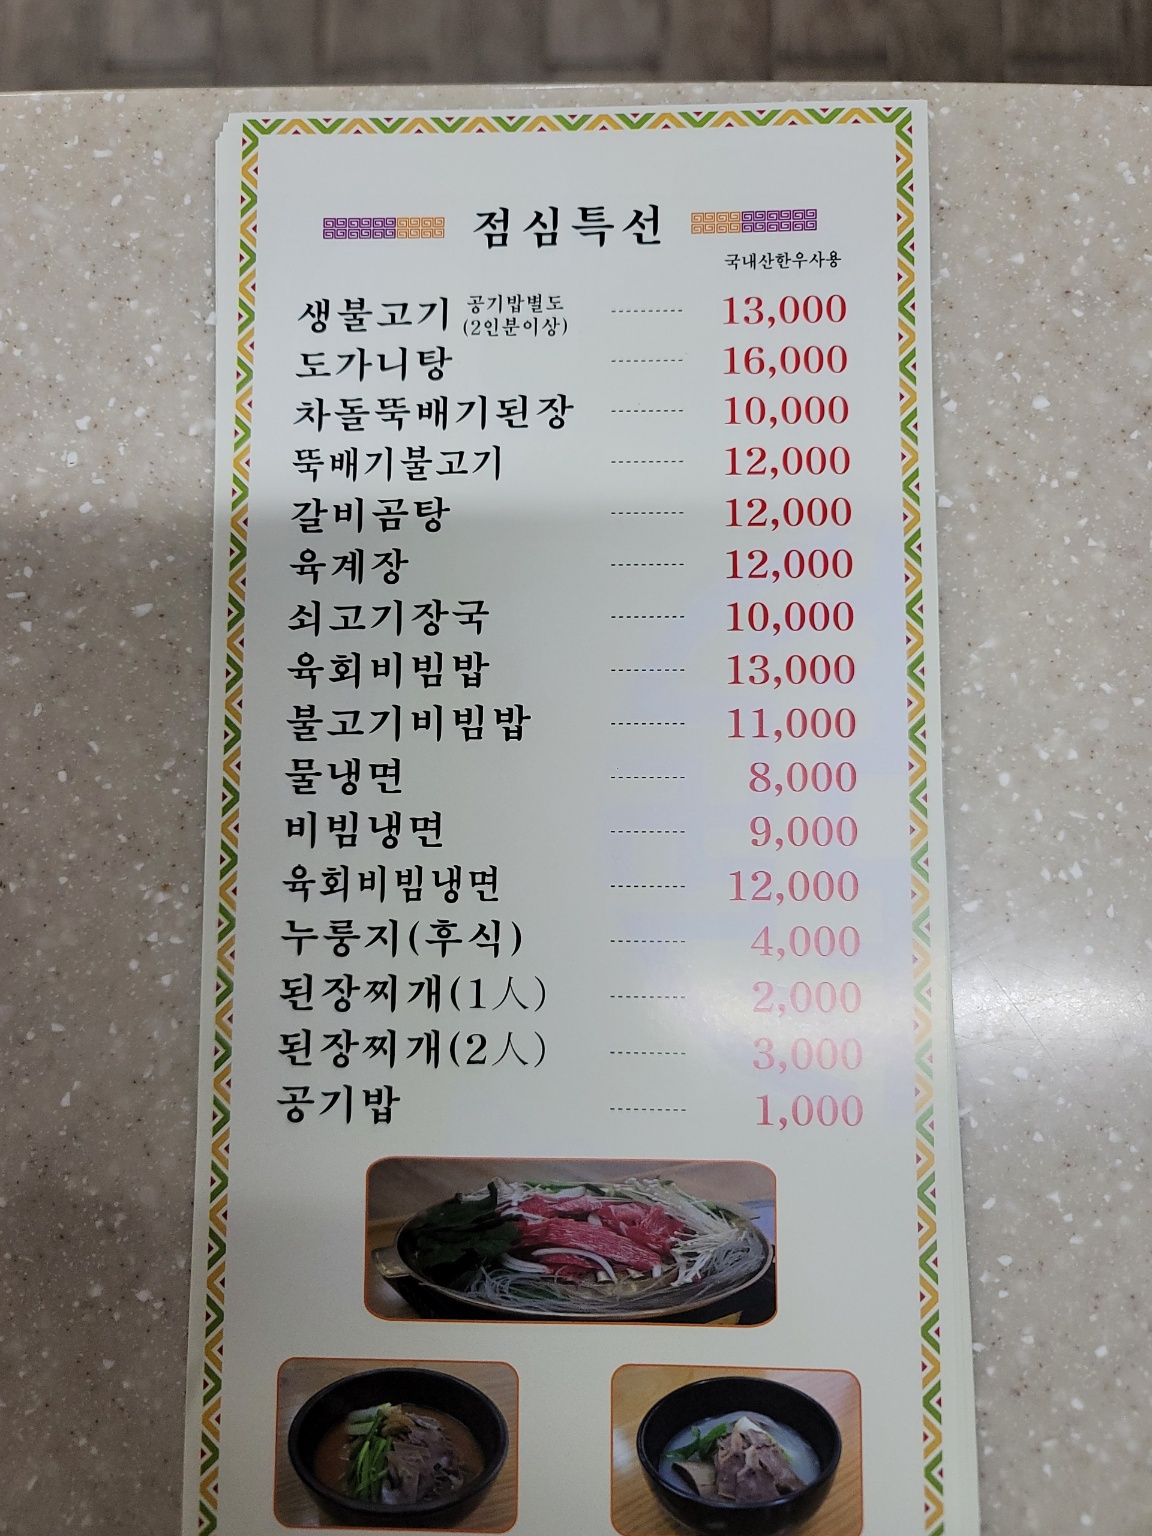 점심특선
국내산한우사용
생불고기 공기밥별도 (2인분이상) 13,000
도가니탕 16,000
차돌뚝배기된장 10,000
뚝배기불고기 12,000
갈비곰탕 12,000
육계장 12,000
쇠고기장국 10,000
육회비빔밥 13,000
불고기비빔밥 11,000
물냉면 8,000
비빔냉면 9,000
육회비빔냉면 12,000
누룽지(후식) 4,000
된장찌개(1人) 2,000
된장찌개(2人) 3,000
공기밥 1,000